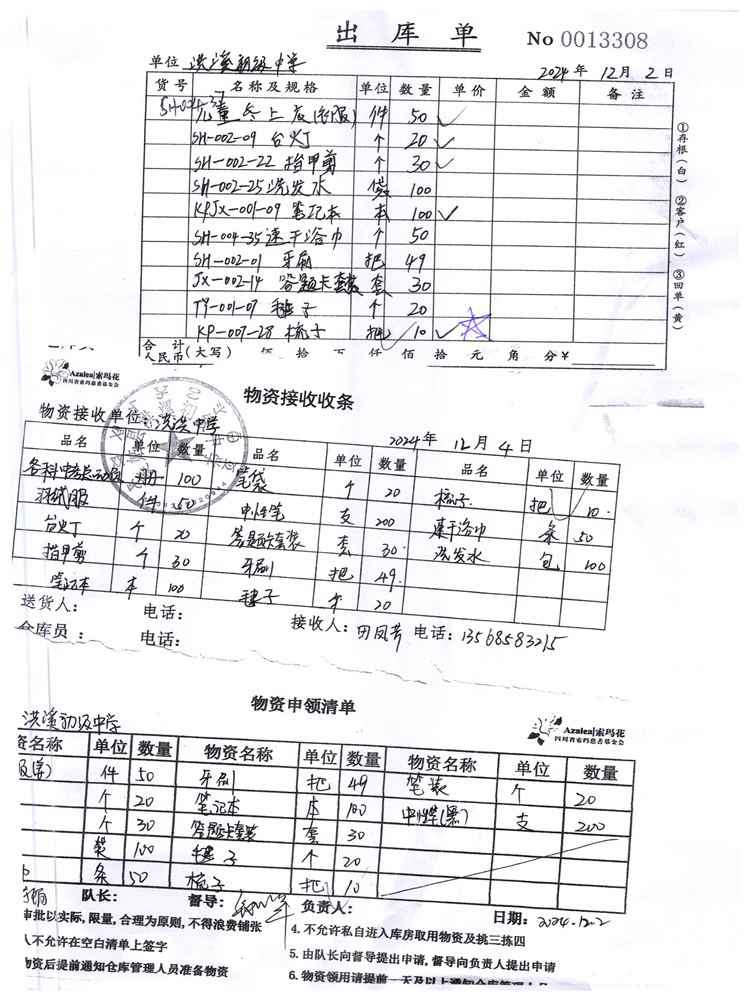 出库单 No 0013308
单位 洪溪初级中学 2024年12月2日
货号 名称及规格 单位 数量 单价 金额 备注
儿童冬上衣(校服) 件 50
SH-002-09 台灯 个 20
SH-002-22 指甲剪 个 30
SH-002-25 洗发水 袋 100
KPJX-001-09 笔记本 本 100
SH-004-35 速干浴巾 个 50
SH-002-01 牙刷 把 49
JX-002-14 答题卡套装 套 30
TY-001-07 毽子 个 20
KP-007-28 梳子 把 10
合计人民币(大写) 佰 拾 万 仟 佰 拾 元 角 分 ¥
①存根(白) ②客户(红) ③回单(黄)
Azalea|索玛花
四川省索玛慈善基金会
物资接收收条
物资接收单位: 洪溪中学 2024年12月4日
品名 单位 数量 品名 单位 数量 品名 单位 数量
册 100 笔袋 个 20 梳子 把 10
件 50 中性笔 支 200 速干浴巾 条 50
台灯 个 20 答题卡套装 套 30 洗发水 包 100
指甲剪 个 30 牙刷 把 49
笔记本 本 100 毽子 个 20
送货人: 电话: 接收人: 田凤芳 电话: 13568583215
仓库员: 电话:
物资申领清单
Azalea|索玛花
四川省索玛慈善基金会
洪溪初级中学
资名称 单位 数量 物资名称 单位 数量 物资名称 单位 数量
件 50 牙刷 把 49 笔袋 个 20
个 20 笔记本 本 100 中性笔(黑) 支 200
个 30 答题卡套装 套 30
袋 100 毽子 个 20
条 50 梳子 把 10
队长: 督导: 负责人: 日期: 2024.12.2
审批以实际,限量,合理为原则,不得浪费铺张
人不允许在空白清单上签字
物资后提前通知仓库管理人员准备物资
4. 不允许私自进入库房取用物资及挑三拣四
5. 由队长向督导提出申请,督导向负责人提出申请
6. 物资领用请提前一天及以上通知仓库管理人员